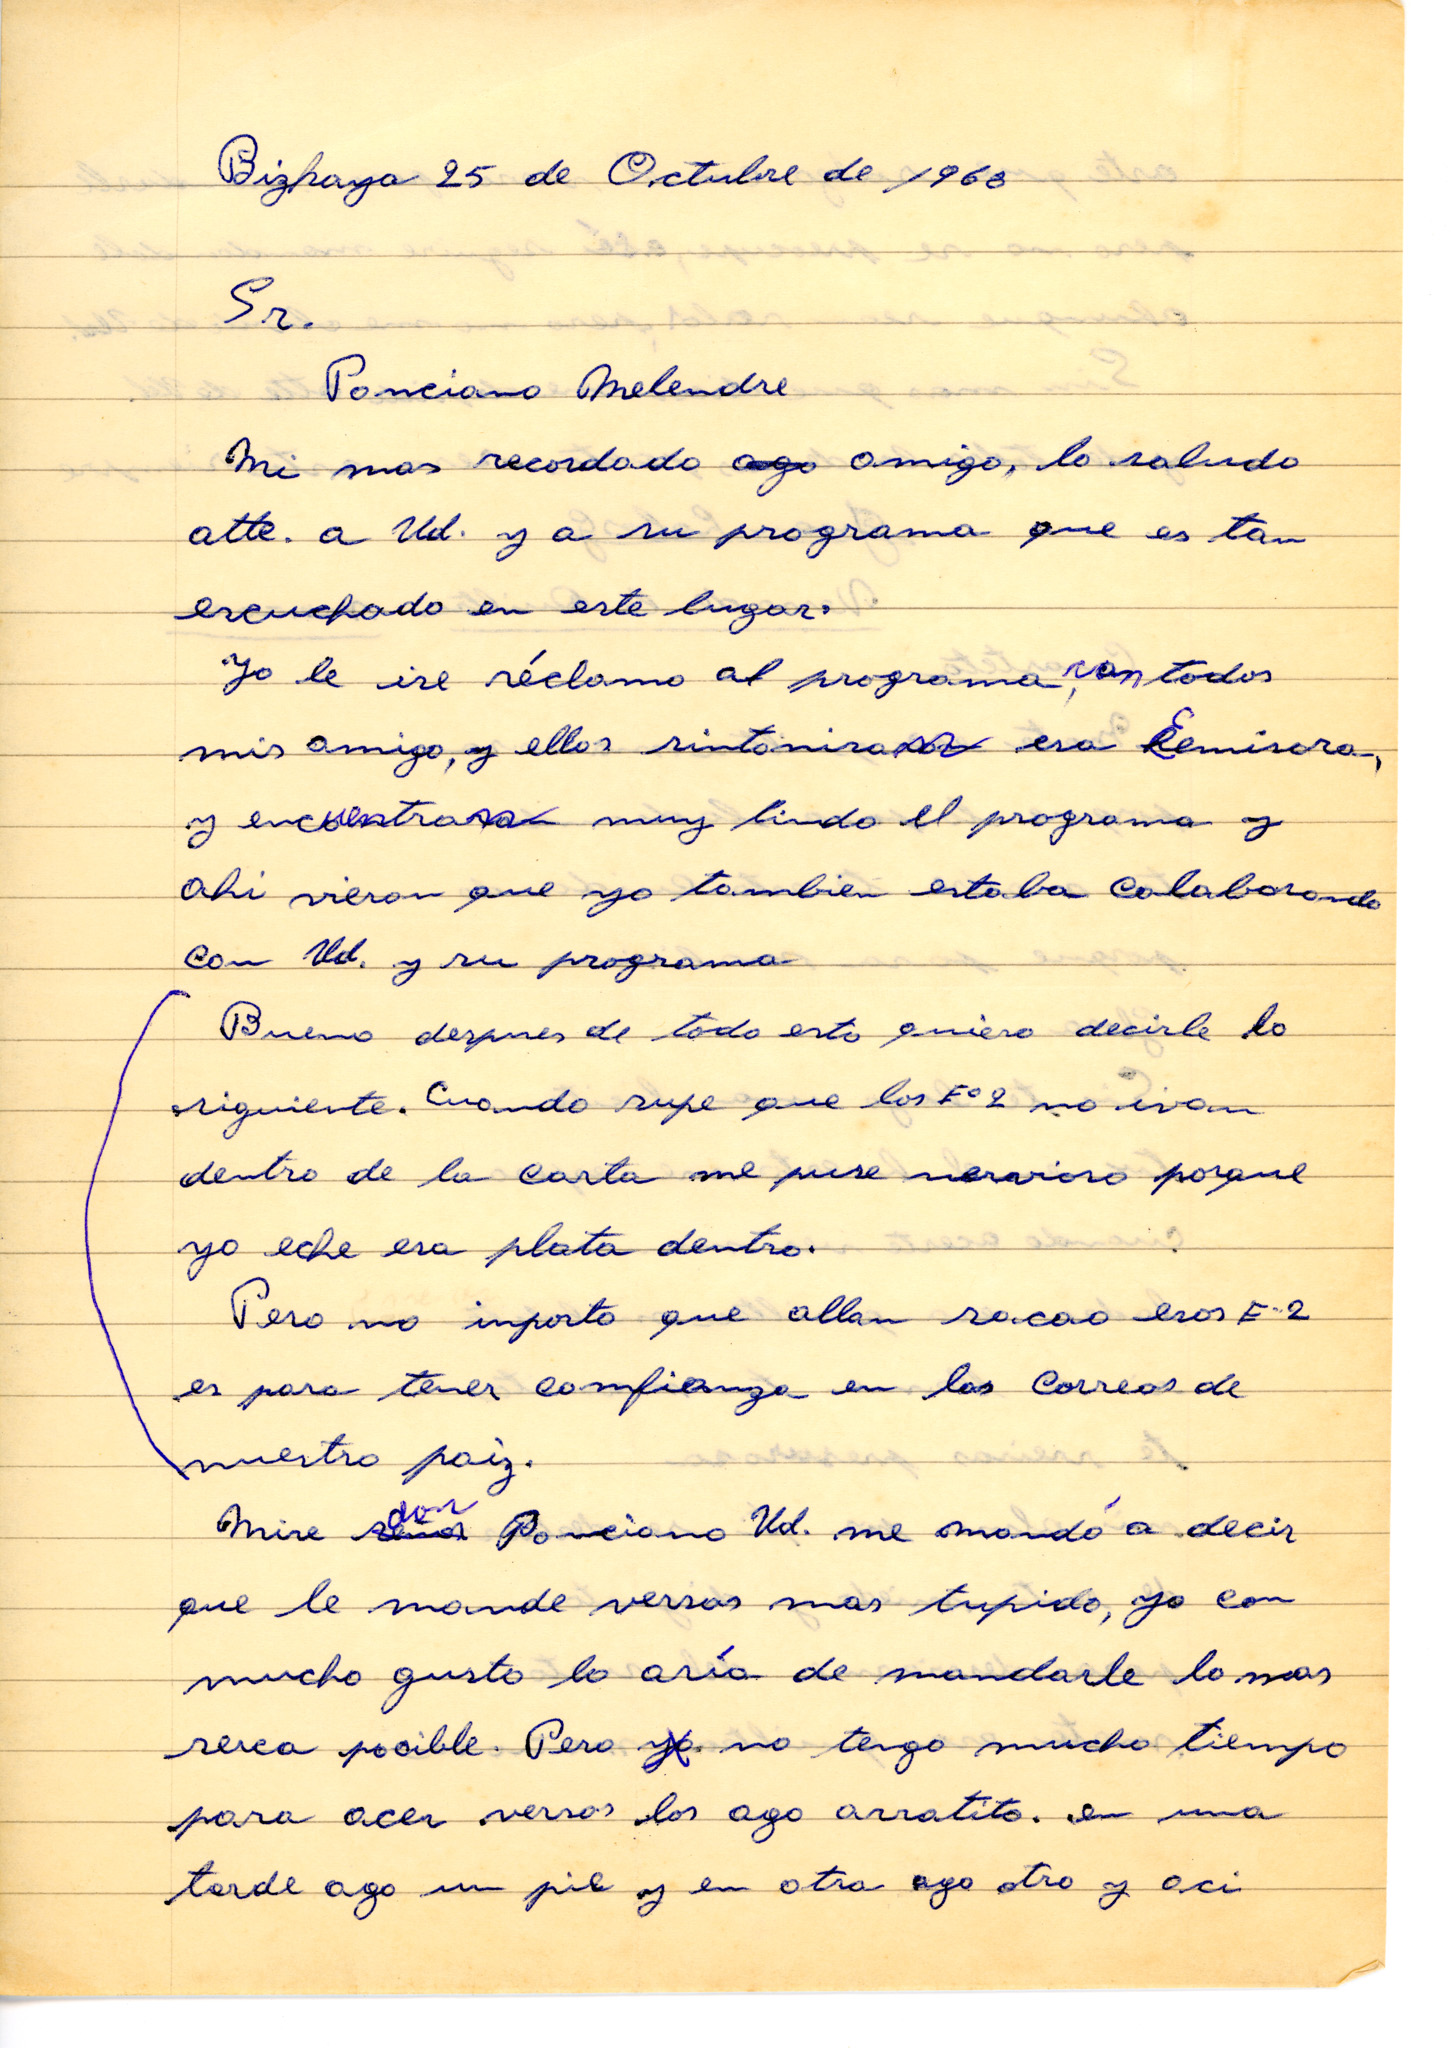 Bizhaya 25 de Octubre de 1968
Sr.
Ponciano Melendre
Mi mas recordado ago amigo, lo saludo
atte. a Ud. y a su programa que es tan
escuchado en este lugar.
Yo le ise réclamo al programa, con todos
mis amigo, y ellos sintonisaron esa Eemisora,
y encuentraron muy lindo el programa y
ahi vieron que yo tambien estaba colaborando
con Ud. y su programa
Bueno despues de todo esto quiero decirle lo
siguiente. Cuando supe que los Eº2 no ivan
dentro de la carta me puse nervioso porque
yo eche esa plata dentro.
Pero no inporta que allan sacao esos Eº2
es para tener comfianza en los Correos de
nuestro paiz.
Mire señor don Ponciano Ud. me mandó a decir
que le mande versos mas tupido, yo con
mucho gusto lo aría de mandarle lo mas
serca pocible. Pero yo no tengo mucho tiempo
para acer versos los ago arratito. en una
tarde ago un pie y en otra ago otro y aci